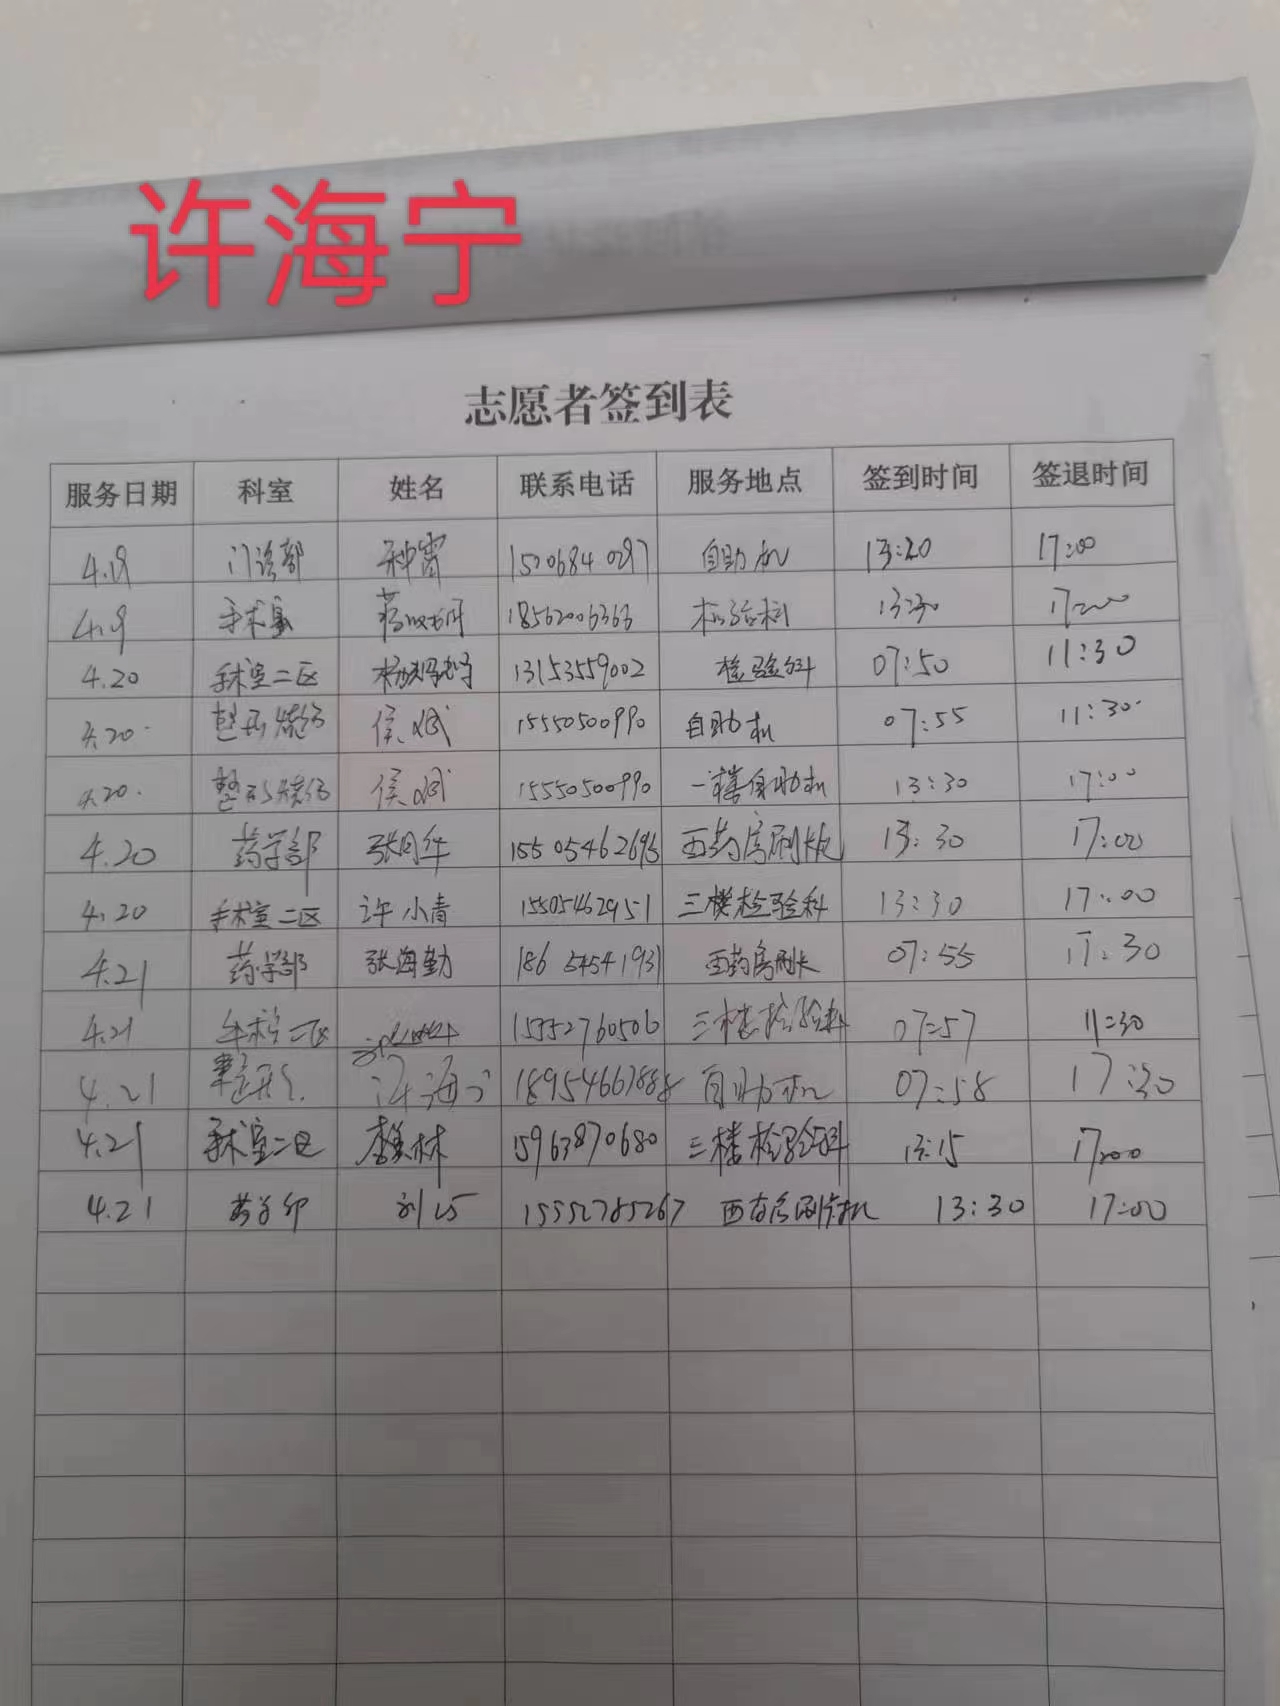 许海宁
志愿者签到表
服务日期 科室 姓名 联系电话 服务地点 签到时间 签退时间
4.19 门诊部 种霄 15206840297 自助机 13:20 17:00
4.19 手术室 18562006363 检验科 13:30 17:00
4.20 手术室二区 13153559002 检验科 07:50 11:30
4.20. 整形烧伤 侯斌 15550500990 自助机 07:55 11:30.
4.20. 整形烧伤 侯斌 15550500990 一楼自助机 13:30 17:00
4.20 药学部 张同华 西药房刷卡 13:30 17:00
4.20 手术室二区 许小青 15505462951 三楼检验科 13:30 17:00
4.21 药学部 张海勤 18654541931 西药房刷卡 07:55 11:30
4.21 手术室二区 15552760506 三楼检验科 07:57 11:30
4.21 整形 许海宁 18954667888 自助机 07:58 17:30
4.21 手术室二区 李美林 15963870680 三楼检验科 13:15 17:00
4.21 药学部 刘巧 15552785267 西药房刷卡机 13:30 17:00